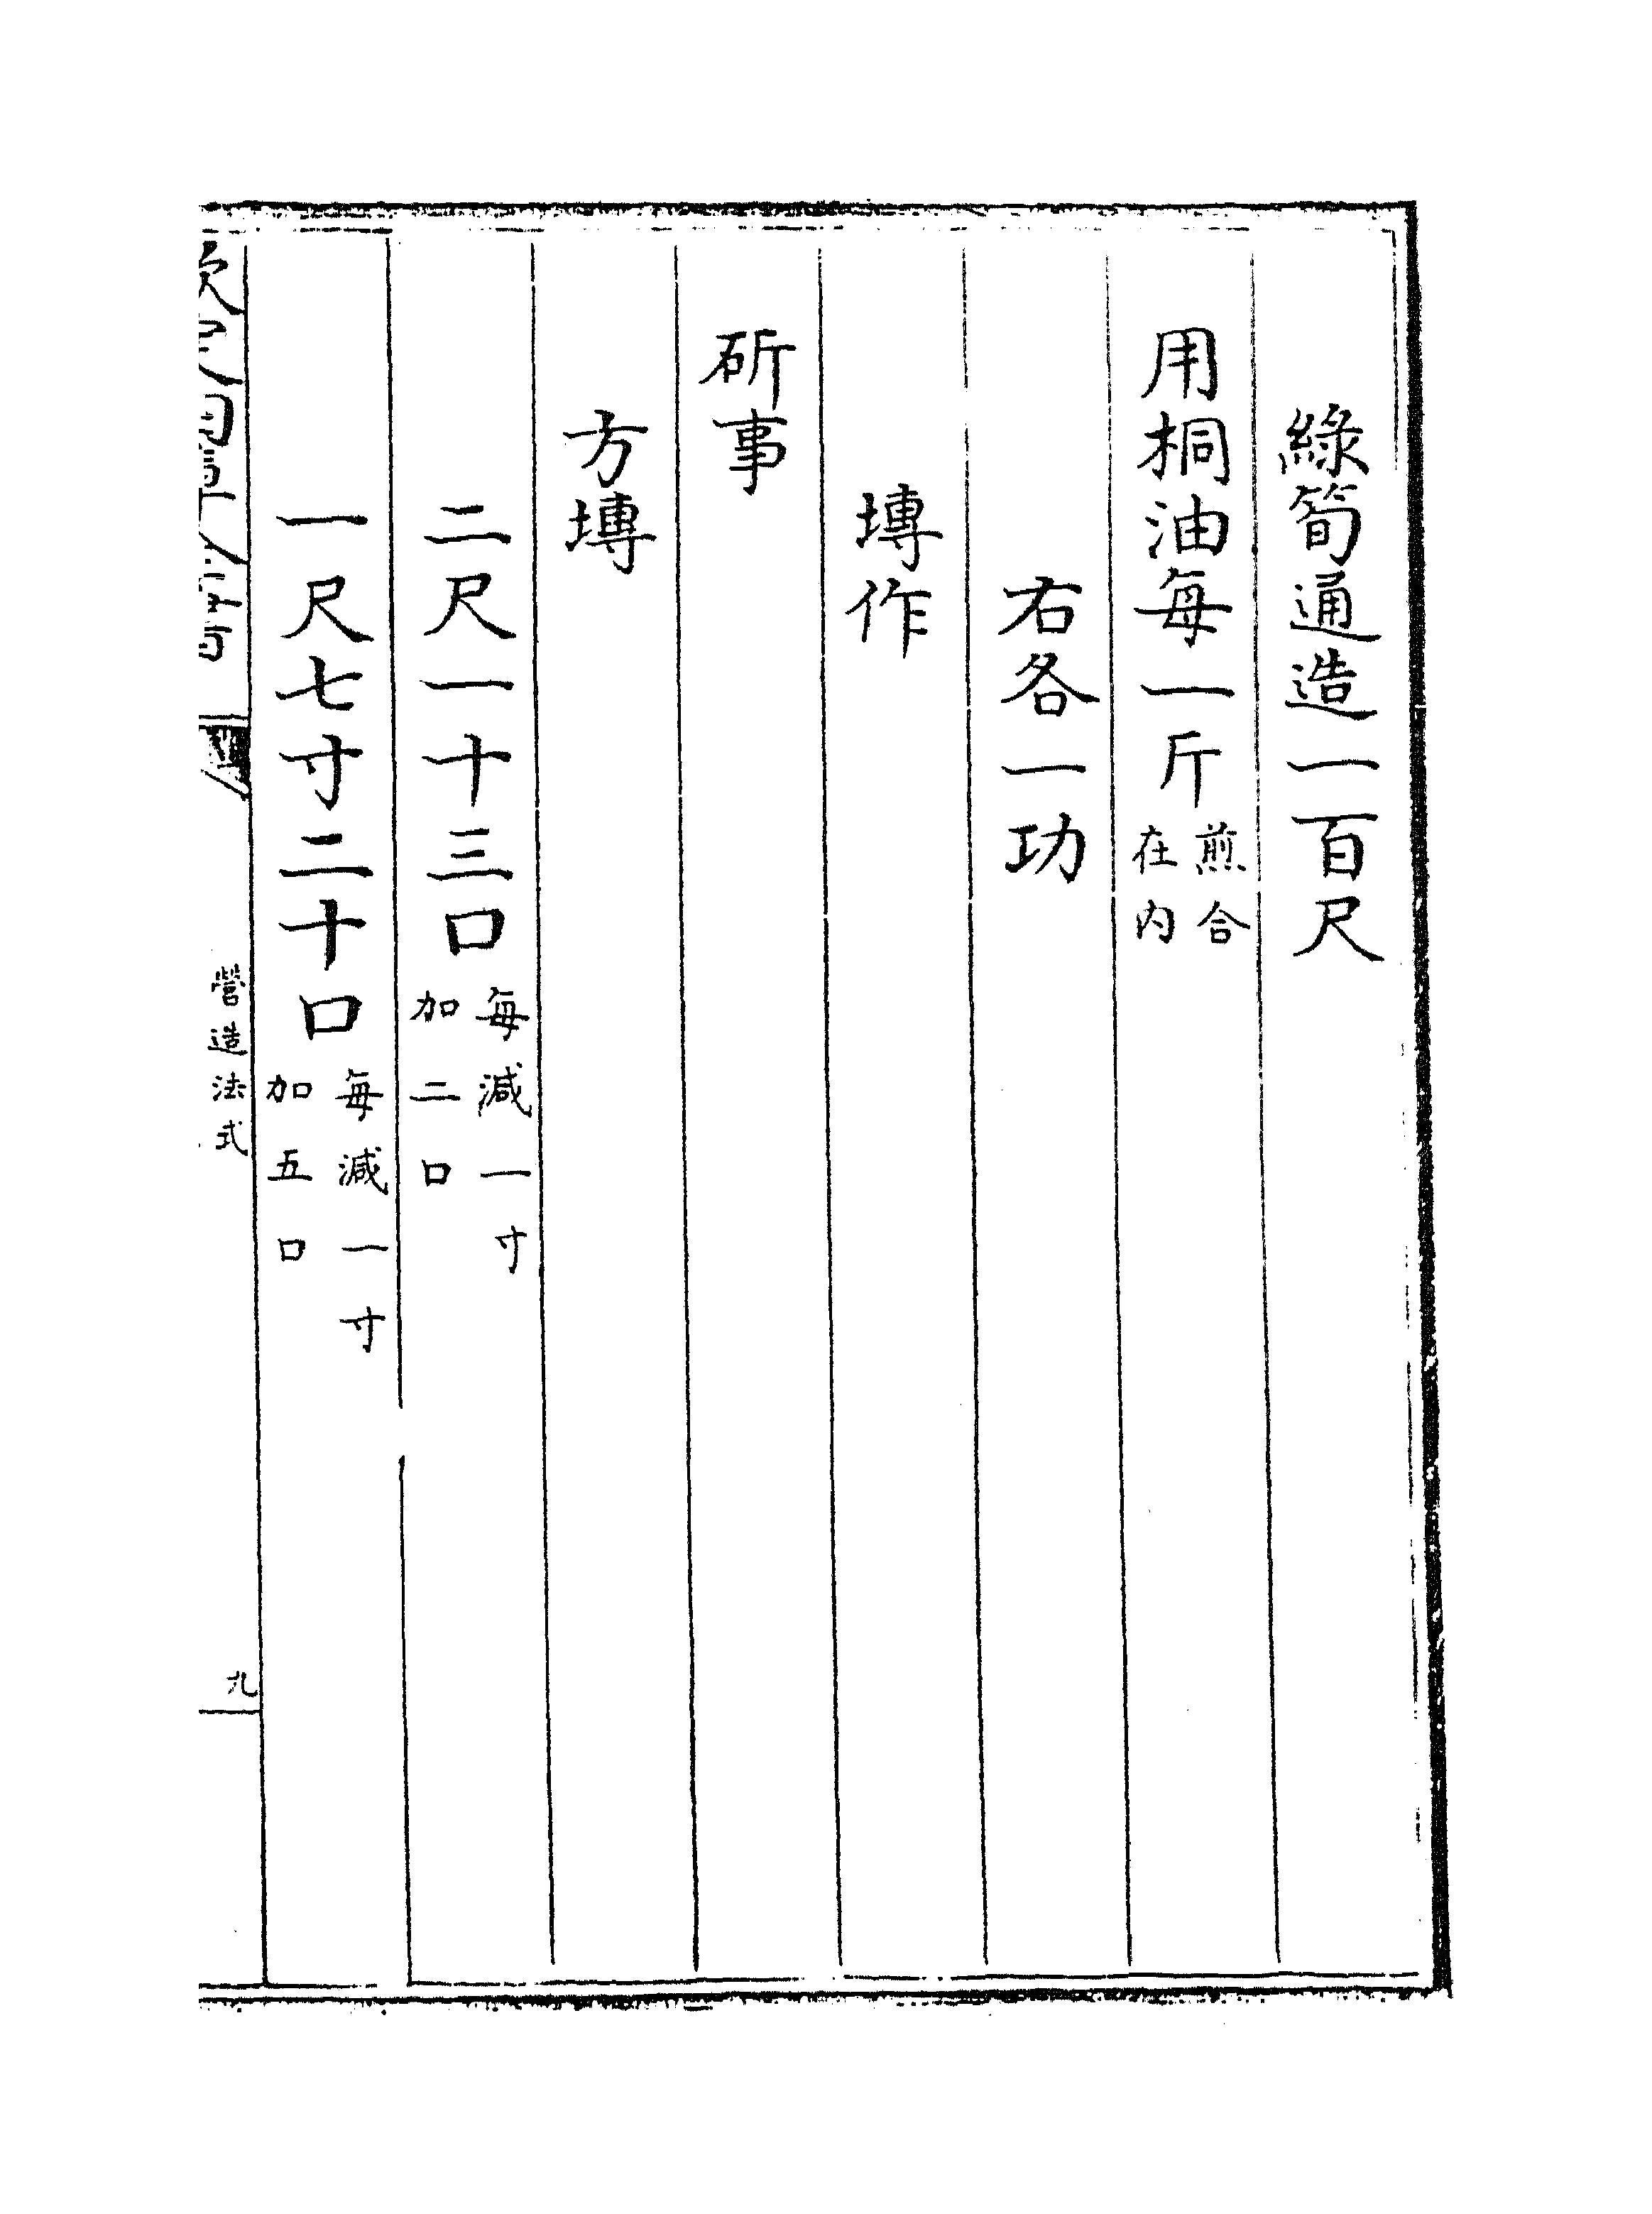 綠筍通造一百尺
用桐油每一斤煎合在内
右各一功
塼作
斫事
方塼
二尺一十三口每減一寸加二口
一尺七寸二十口每減一寸加五口
營造法式
九